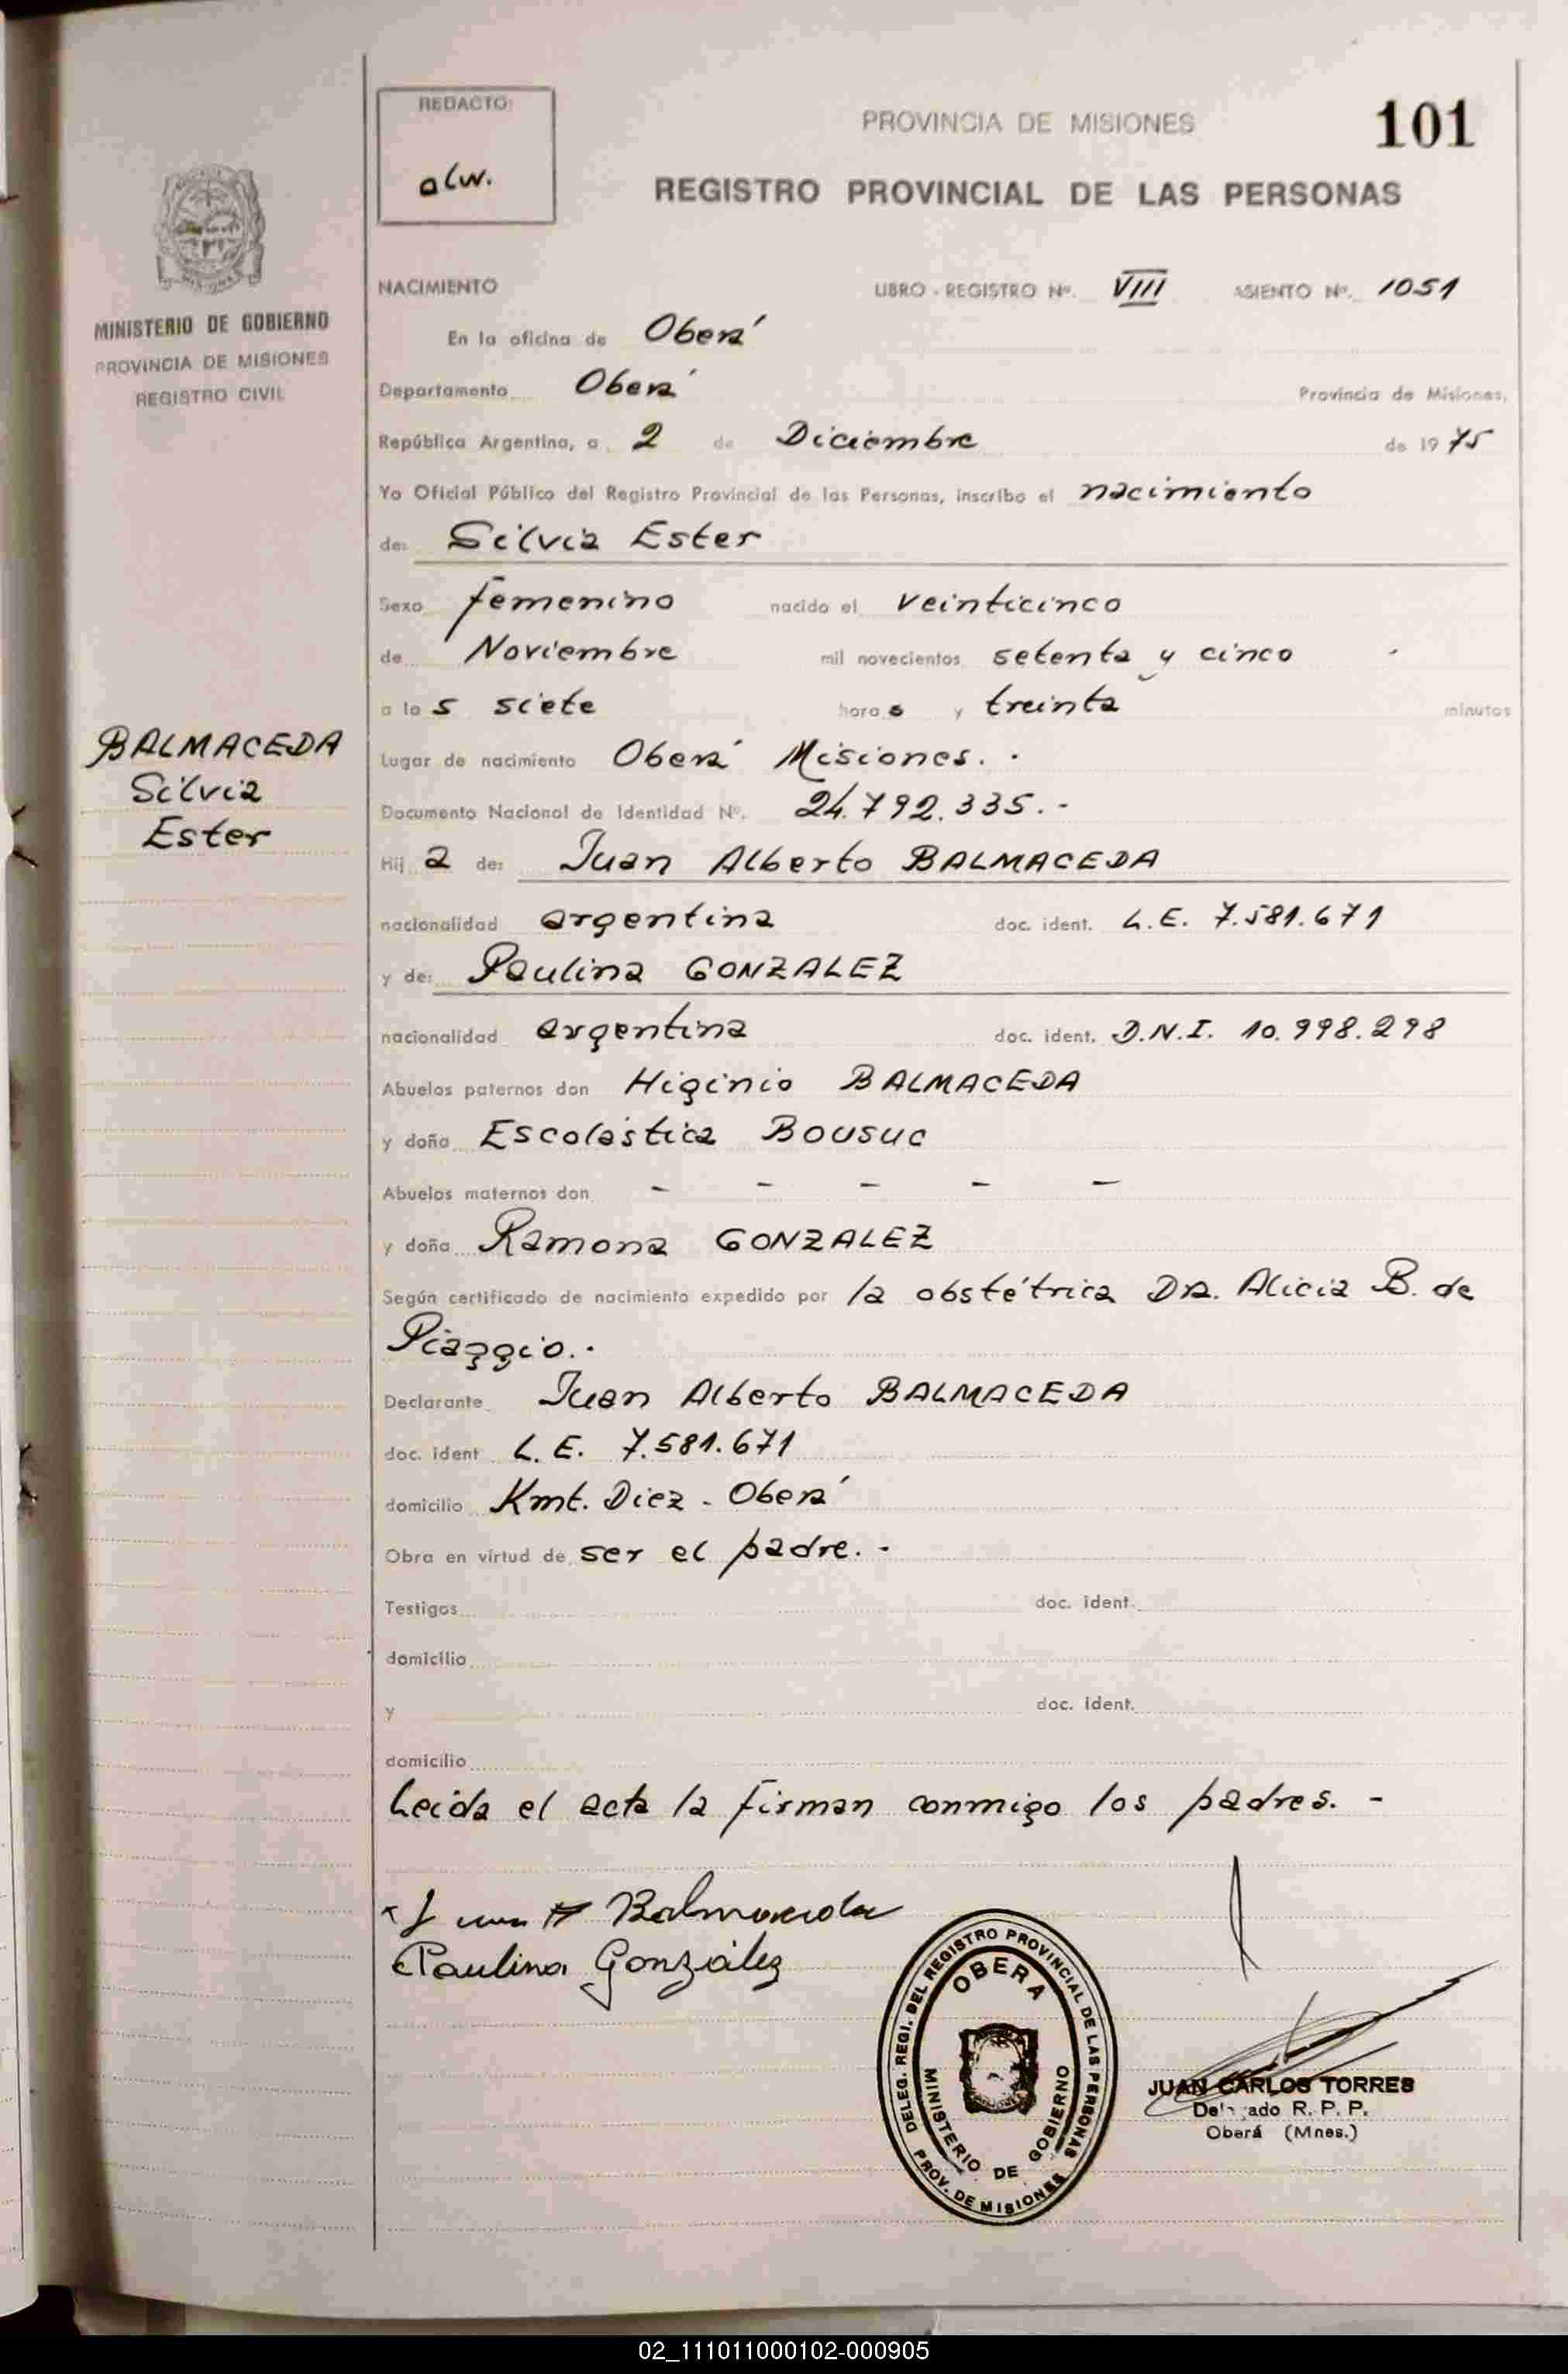 REDACTO:
alw.
PROVINCIA DE MISIONES
101
REGISTRO PROVINCIAL DE LAS PERSONAS
MINISTERIO DE GOBIERNO
PROVINCIA DE MISIONES
REGISTRO CIVIL
BALMACEDA
Silvia
Ester
NACIMIENTO LIBRO - REGISTRO Nº. VIII ASIENTO Nº. 1051
En la oficina de Oberá
Departamento Oberá Provincia de Misiones,
República Argentina, a 2 de Diciembre de 1975
Yo Oficial Público del Registro Provincial de las Personas, inscribo el nacimiento
de: Silvia Ester
Sexo femenino nacido el veinticinco
de Noviembre mil novecientos setenta y cinco
a las siete horas y treinta minutos
Lugar de nacimiento Oberá Misiones. -
Documento Nacional de Identidad Nº. 24.792.335. -
Hija de: Juan Alberto BALMACEDA
nacionalidad argentina doc. ident. L.E. 7.581.671
y de: Paulina GONZALEZ
nacionalidad argentina doc. ident. D.N.I. 10.998.298
Abuelos paternos don Higinio BALMACEDA
y doña Escolástica BOUSUC
Abuelos maternos don - - - - -
y doña Ramona GONZALEZ
Según certificado de nacimiento expedido por la obstétrica Dra. Alicia B. de
Piaggio. -
Declarante Juan Alberto BALMACEDA
doc. ident L.E. 7.581.671
domicilio Kmt. Diez - Oberá
Obra en virtud de ser el padre. -
Testigos doc. ident.
domicilio
y doc. ident.
domicilio
Leída el acta la firman conmigo los padres. -
Juan A Balmaceda
Paulina González
DELEG. REGI. DEL REGISTRO PROVINCIAL DE LAS PERSONAS
OBERA
MINISTERIO DE GOBIERNO
PROV. DE MISIONES
JUAN CARLOS TORRES
Delegado R. P. P.
Oberá (Mnes.)
02_111011000102-000905